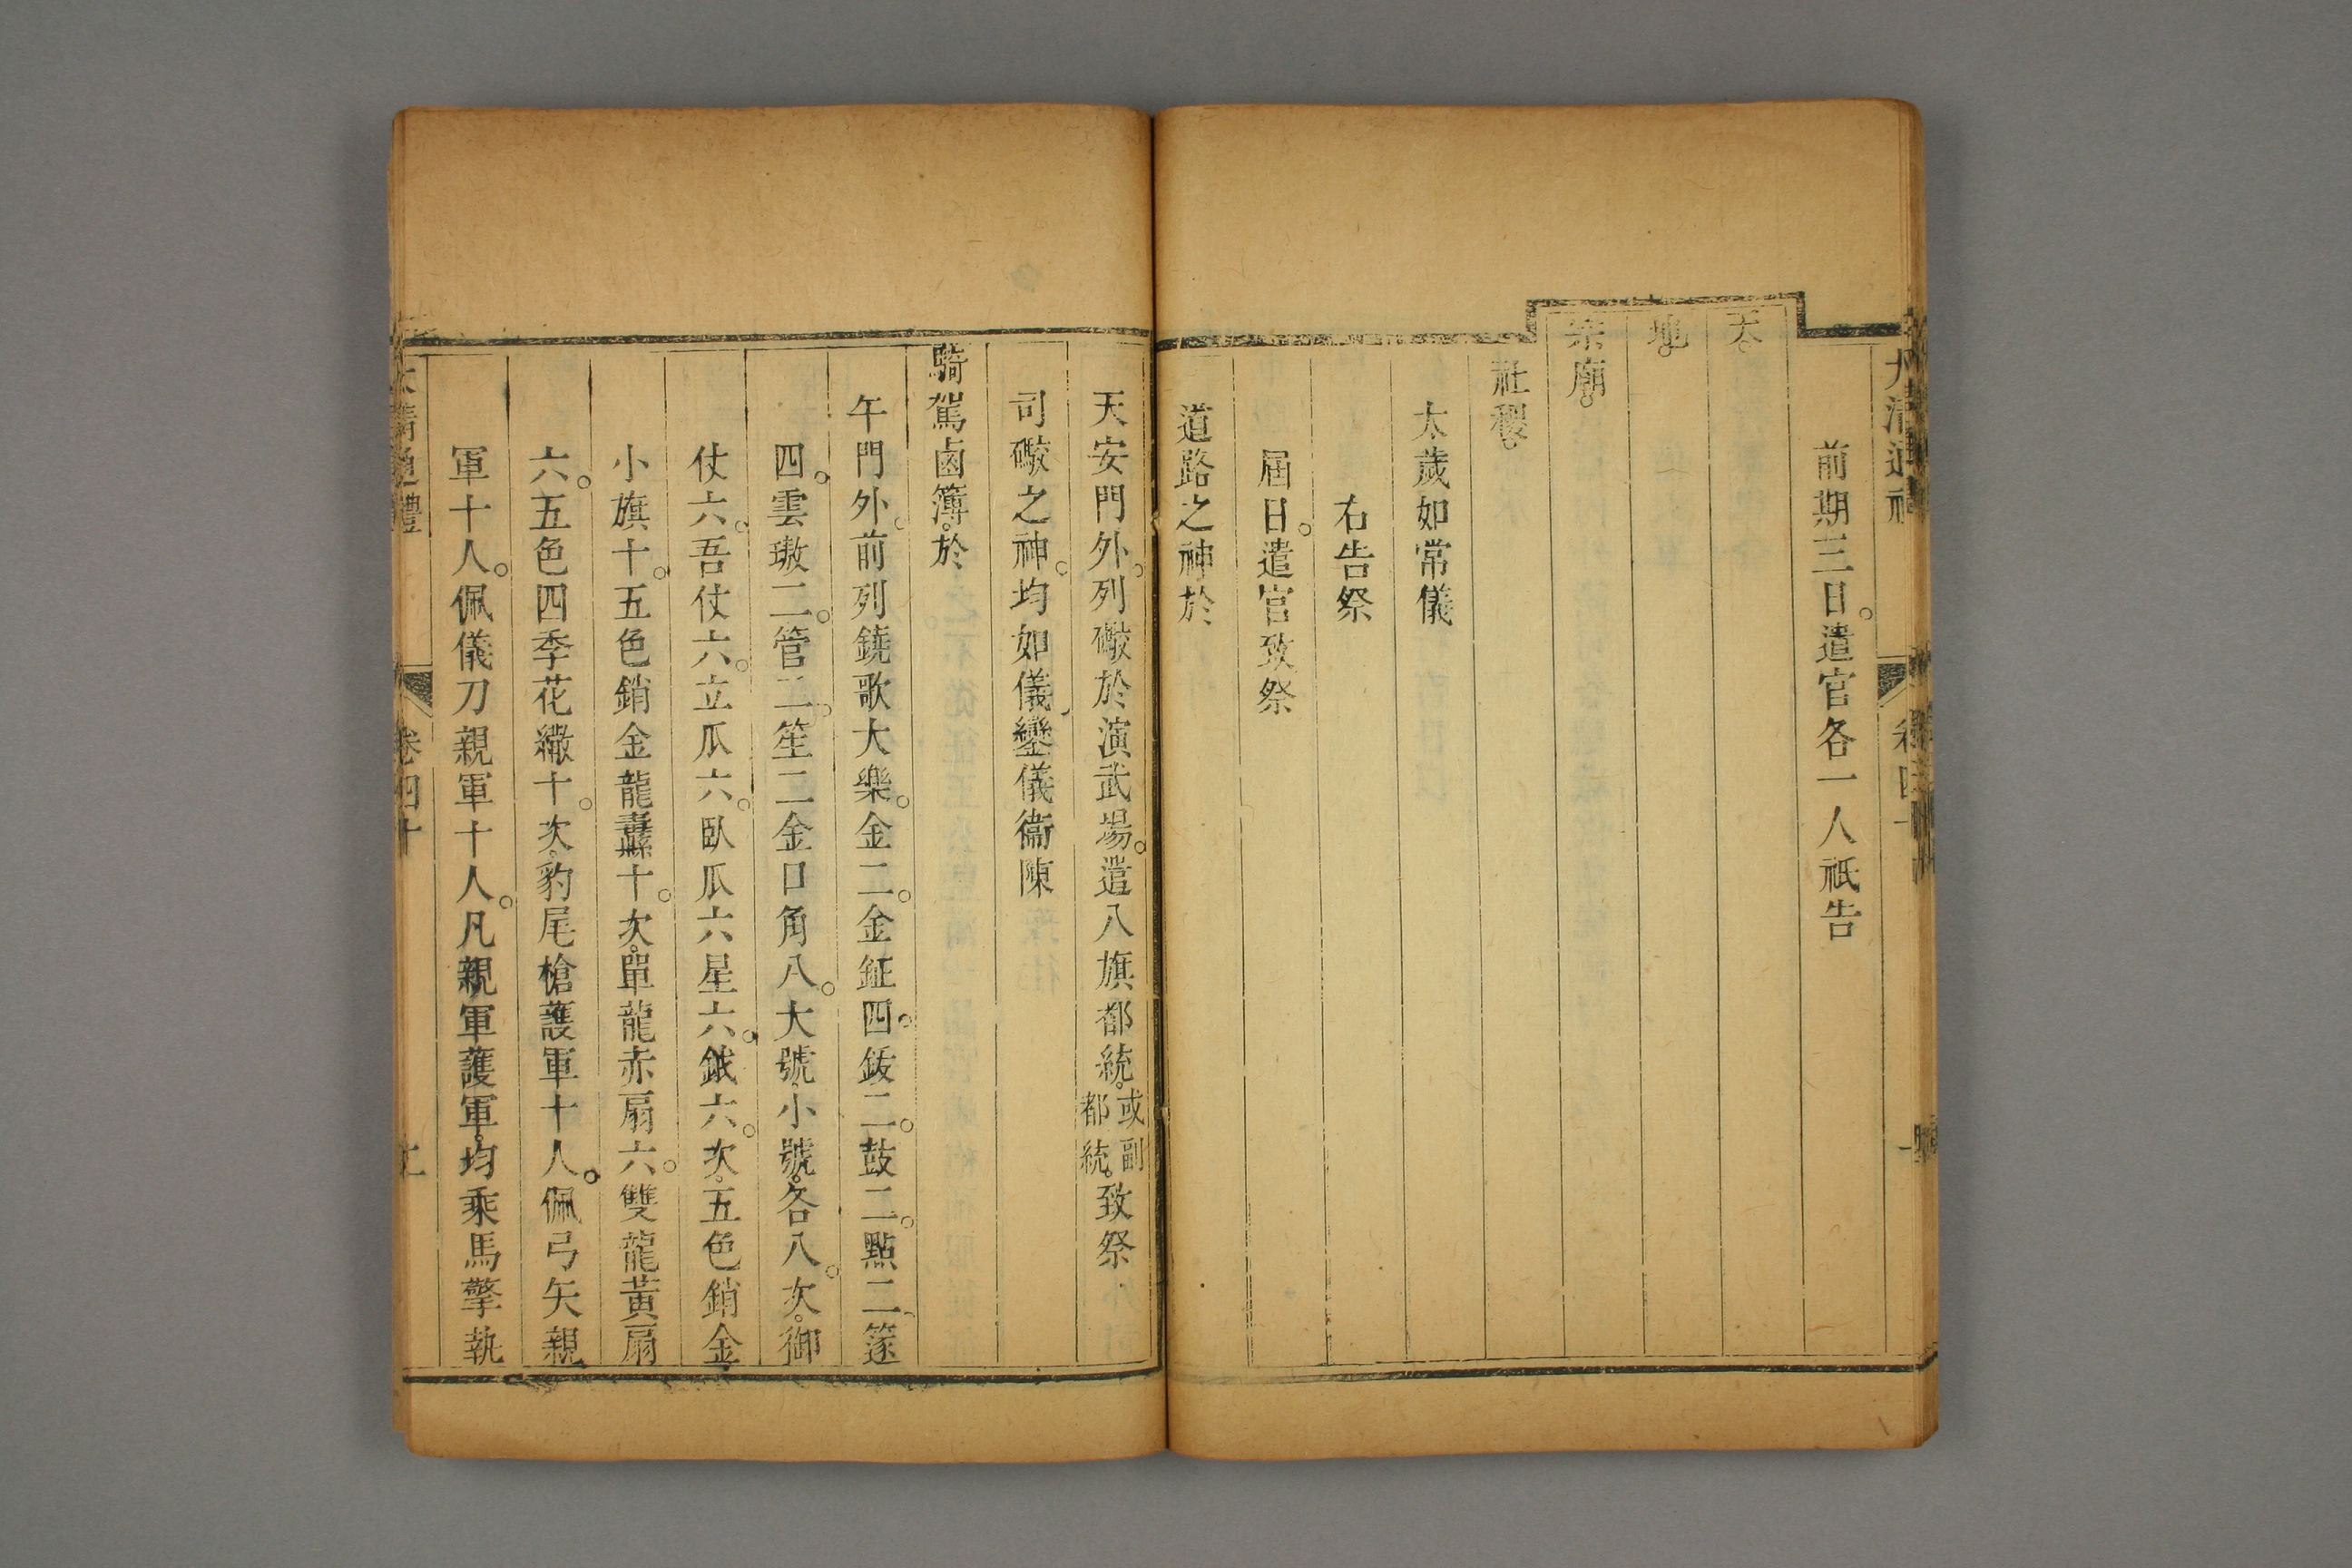 大清通禮 卷四十
前期三日。遣官各一人祇告
天。
地。
宗廟。
社稷。
太歲如常儀
右告祭
屆日。遣官致祭
道路之神於
天安門外。列礮於演武場。遣八旗都統。或副都統。致祭
司礮之神。均如儀鑾儀衞陳
騎駕鹵簿。於
午門外。前列鐃歌大樂。金二。金鉦四。鈸二。鼓二。點二。篴
四。雲璈二。管二。笙二金口角八。大號。小號。各八。次。御
仗六。吾仗六。立瓜六。臥瓜六星六。鉞六。次。五色銷金
小旗十。五色銷金龍纛十。次。單龍赤扇六。雙龍黃扇
六。五色四季花繖十。次。豹尾槍護軍十人。佩弓矢親
軍十人。佩儀刀親軍十人。凡親軍護軍。均乘馬擎執
大清通禮 卷四十